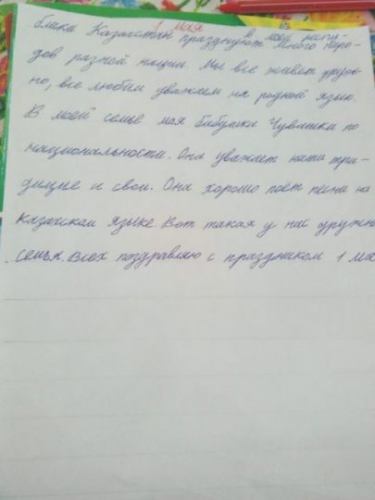 1 мая
в моей респу-
блике Казахстан празднуют много наро-
дов разной нации. Мы все живет друж-
но, все любим уважаем на родной языю.
В моей семье моя бабушка Чувашка по
национальности. Она уважает наши тра-
дицие и свои. Она хорошо поёт песни на
казахском языке. Вот такая у нас дружная
семья. Всех поздравляю с праздником 1 мая